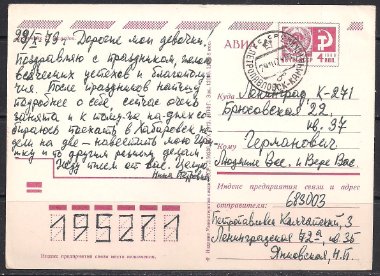 29/X-79г. Дорогие мои девочки!
Поздравляю с праздником, желаю
всяческих успехов и благополу-
чия. После праздников напишу
подробнее о себе, сейчас очень
занята и к тому же на-днях со-
бираюсь поехать в Хабаровск не-
дели на две - навестить мою
и по другим разным делам.
Жду писем от вас. Целую,
Нина
АВИА
ПОЧТА СССР
4 коп
Куда Ленинград К-271
Брюховская 22,
кв. 37
Кому Германович
Людмиле Вас. и Вере Вас.
Индекс предприятия связи и адрес
отправителя: 683003
Петропавловск Камчатский, 3
Ленинградская 72а, кв. 35
Янковская, Н.П.
195271
Индекс предприятия связи места назначения.